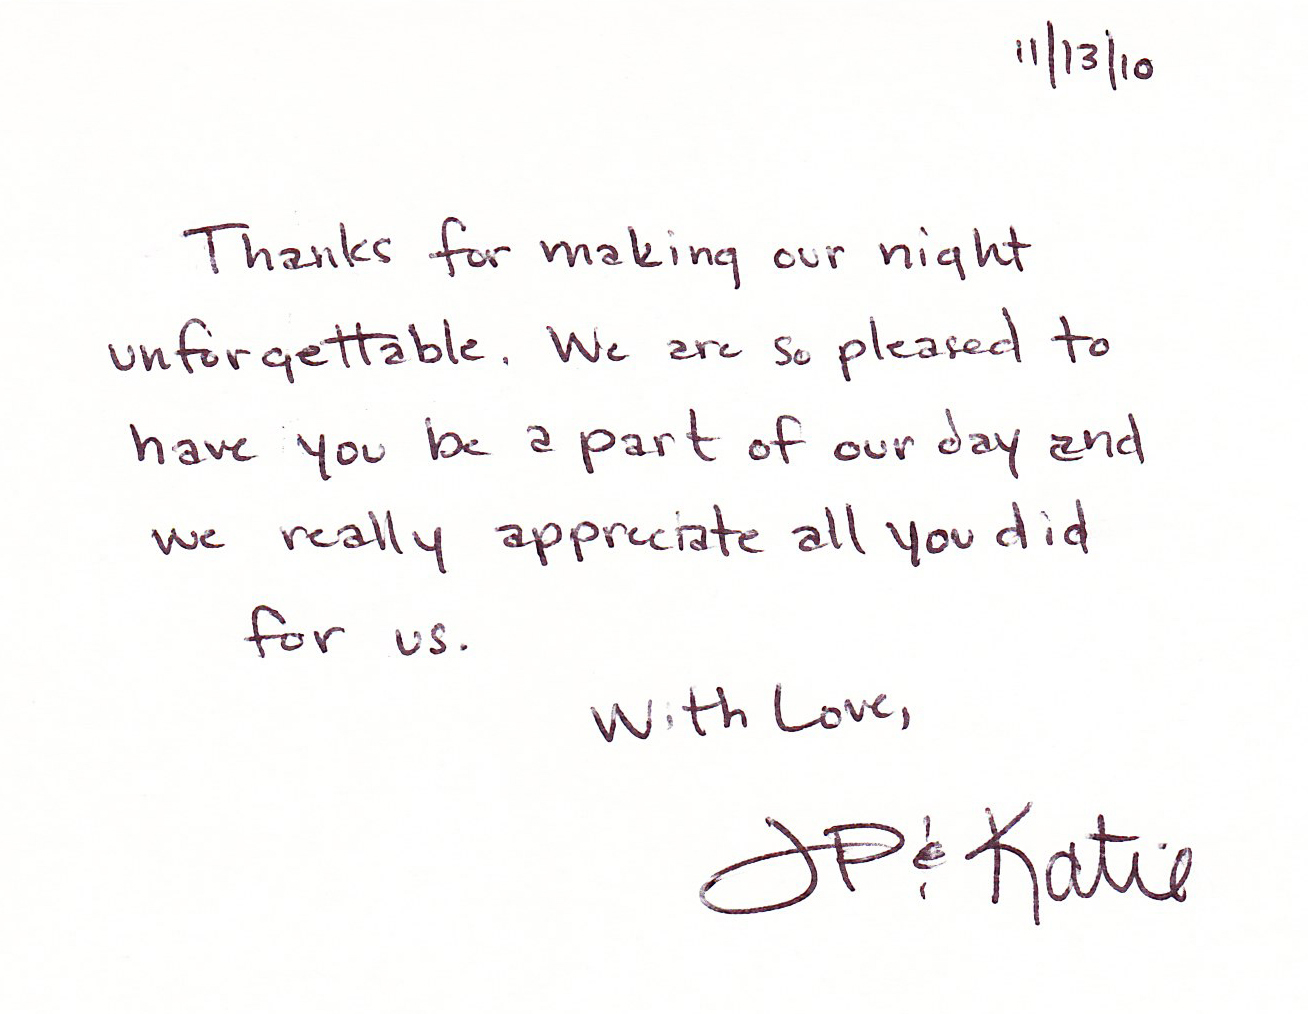 11/13/10
Thanks for making our night
unforgettable. We are so pleased to
have you be a part of our day and
we really appreciate all you did
for us.
With Love,
JP & Katie